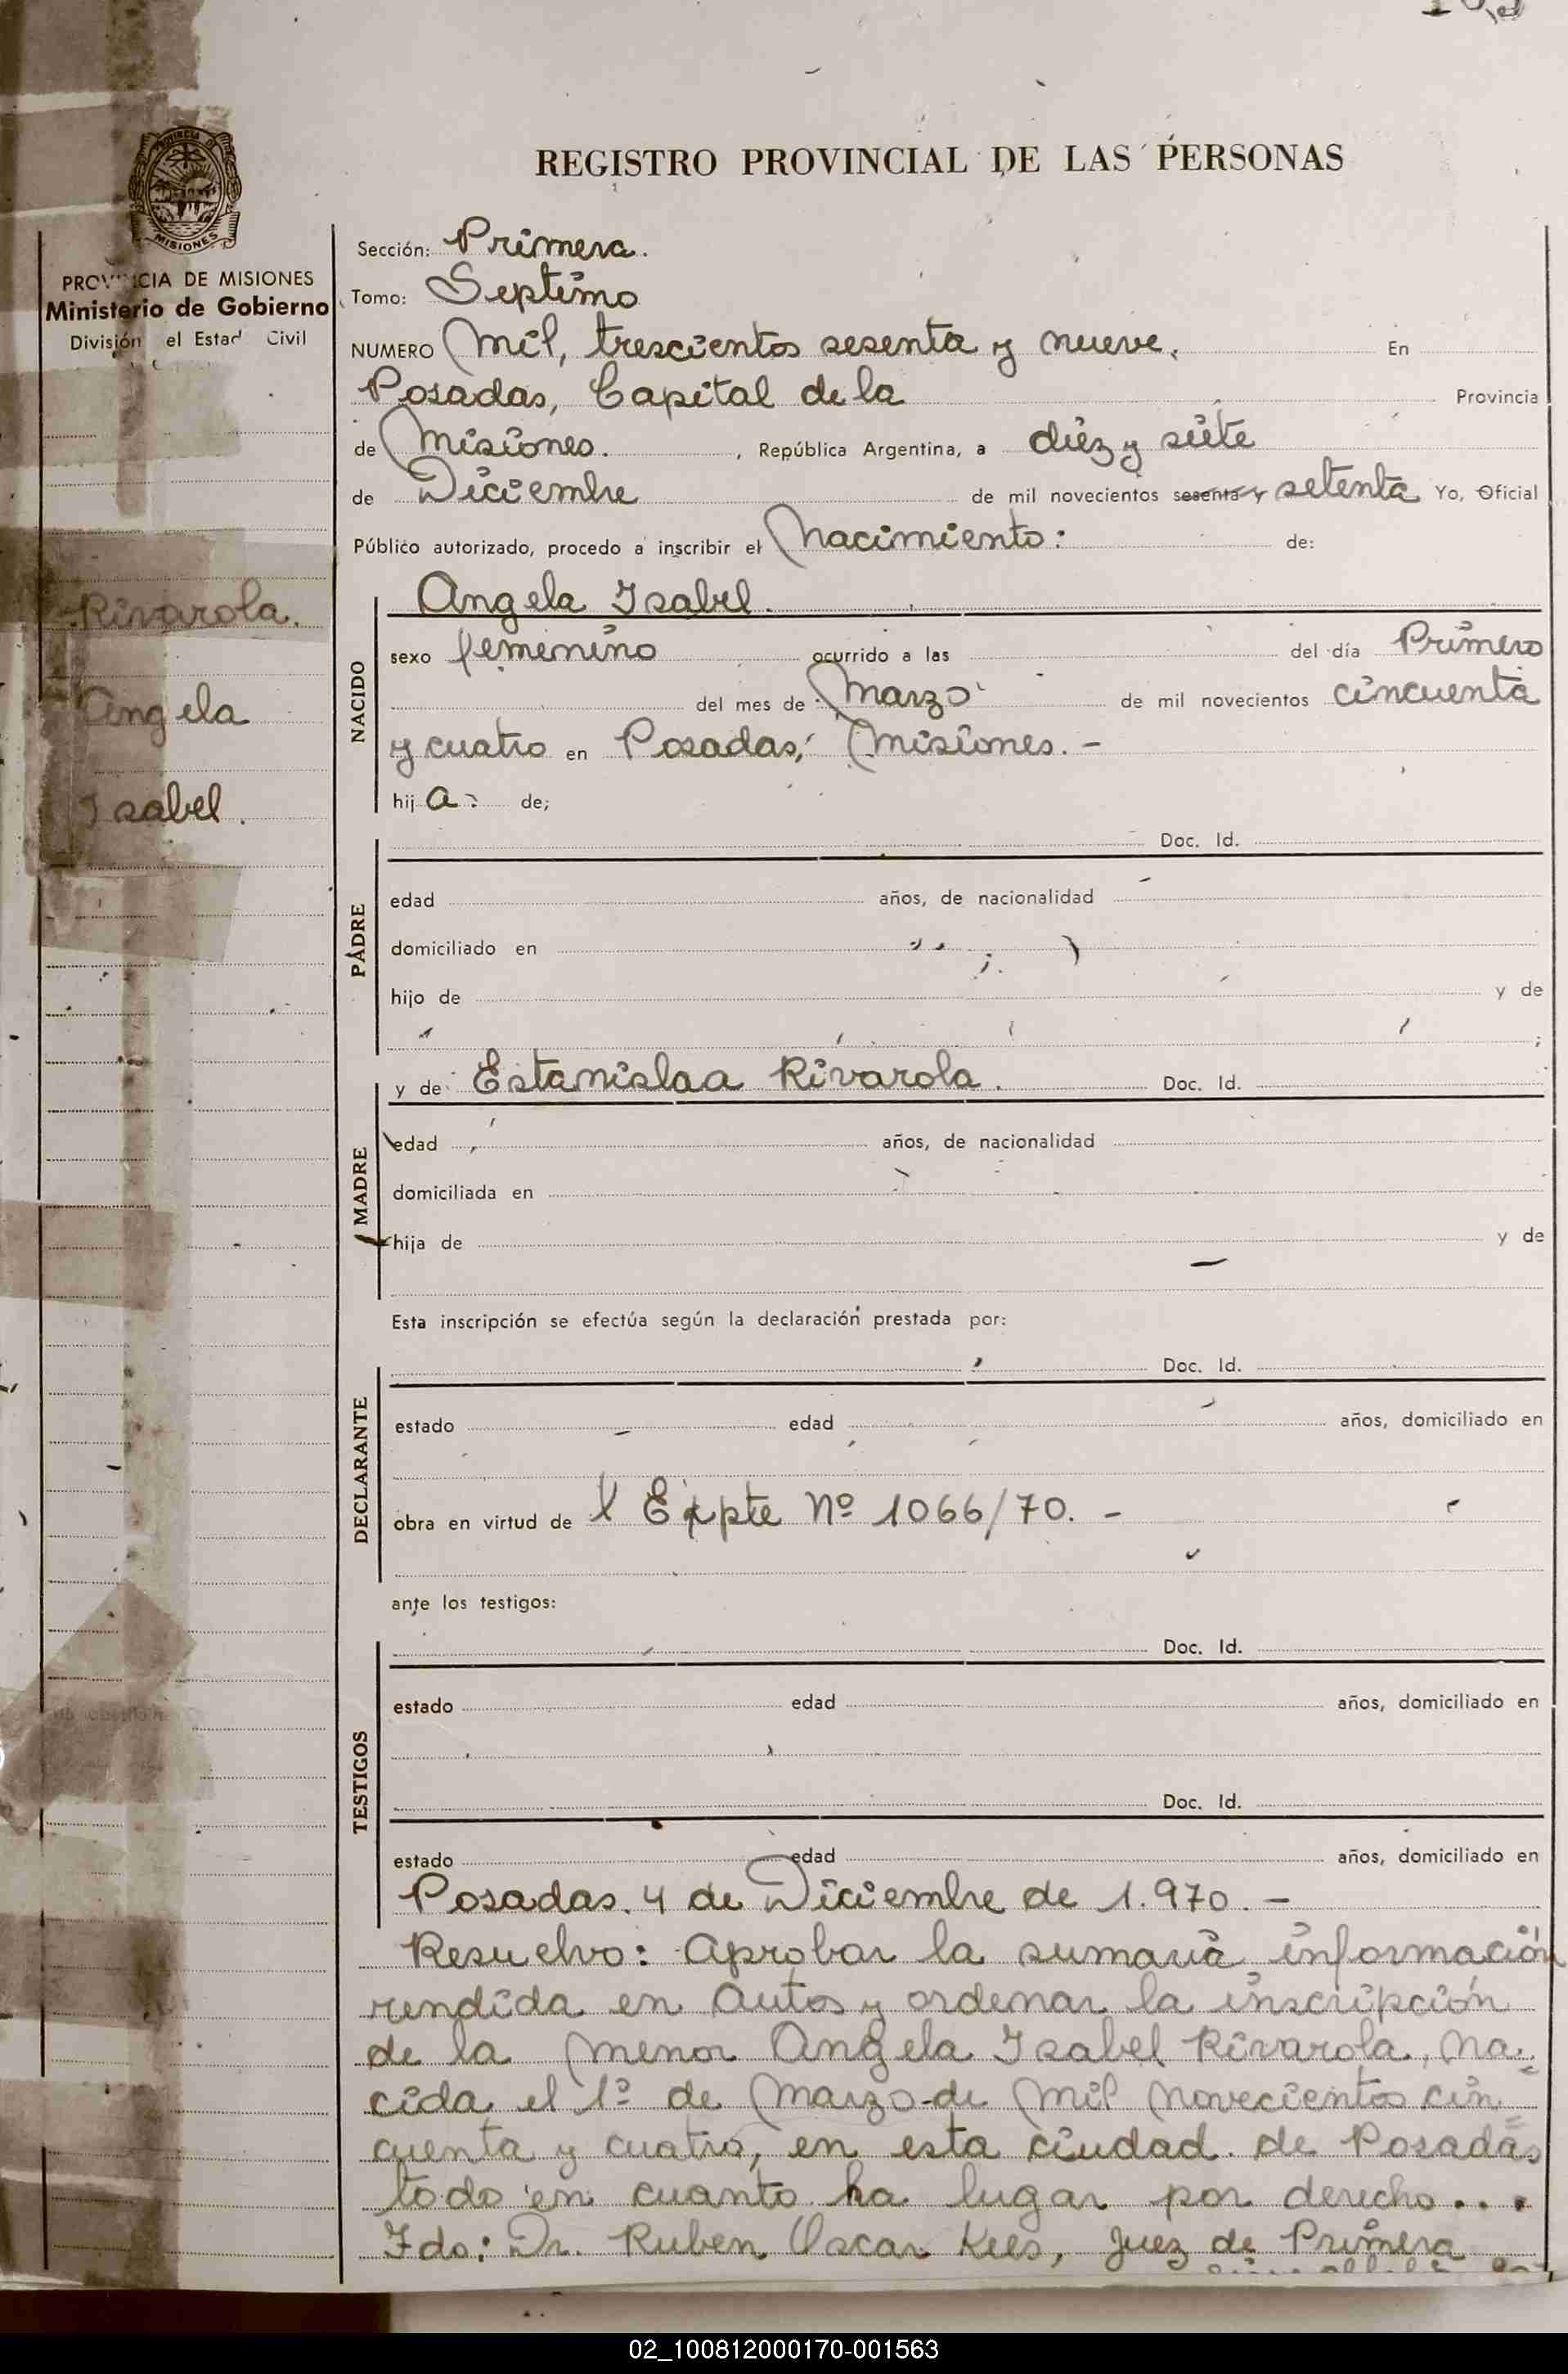 REGISTRO PROVINCIAL DE LAS PERSONAS
PROVINCIA DE
MISIONES
PROVINCIA DE MISIONES
Ministerio de Gobierno
División del Estado Civil
Rivarola.
Angela
Isabel.
Sección: Primera.
Tomo: Septimo
NUMERO Mil, trescientos sesenta y nueve. En
Posadas, Capital de la Provincia
de Misiones. , República Argentina, a diez y siete
de Diciembre de mil novecientos sesenta y setenta Yo, Oficial
Público autorizado, procedo a inscribir el Nacimiento: de:
NACIDO
Angela Isabel.
sexo femenino ocurrido a las del día Primero
del mes de Marzo de mil novecientos cincuenta
y cuatro en Posadas, Misiones. -
hij a: de;
PADRE
Doc. Id.
edad años, de nacionalidad
domiciliado en
hijo de y de
;
MADRE
y de Estanislaa Rivarola. Doc. Id.
edad años, de nacionalidad
domiciliada en
hija de y de
Esta inscripción se efectúa según la declaración prestada por:
DECLARANTE
Doc. Id.
estado edad años, domiciliado en
obra en virtud de l Expte Nº 1066/70. -
ante los testigos:
TESTIGOS
Doc. Id.
estado edad años, domiciliado en
Doc. Id.
estado edad años, domiciliado en
Posadas. 4 de Diciembre de 1.970. -
Resuelvo: Aprobar la sumaria información
rendida en Autos y ordenar la inscripción
de la menor Angela Isabel Rivarola, na=
cida el 1º de Marzo de mil novecientos cin=
cuenta y cuatro, en esta ciudad de Posadas
todo en cuanto ha lugar por derecho...
Fdo: Dr. Ruben Oscar Kees, Juez de Primera
02_100812000170-001563